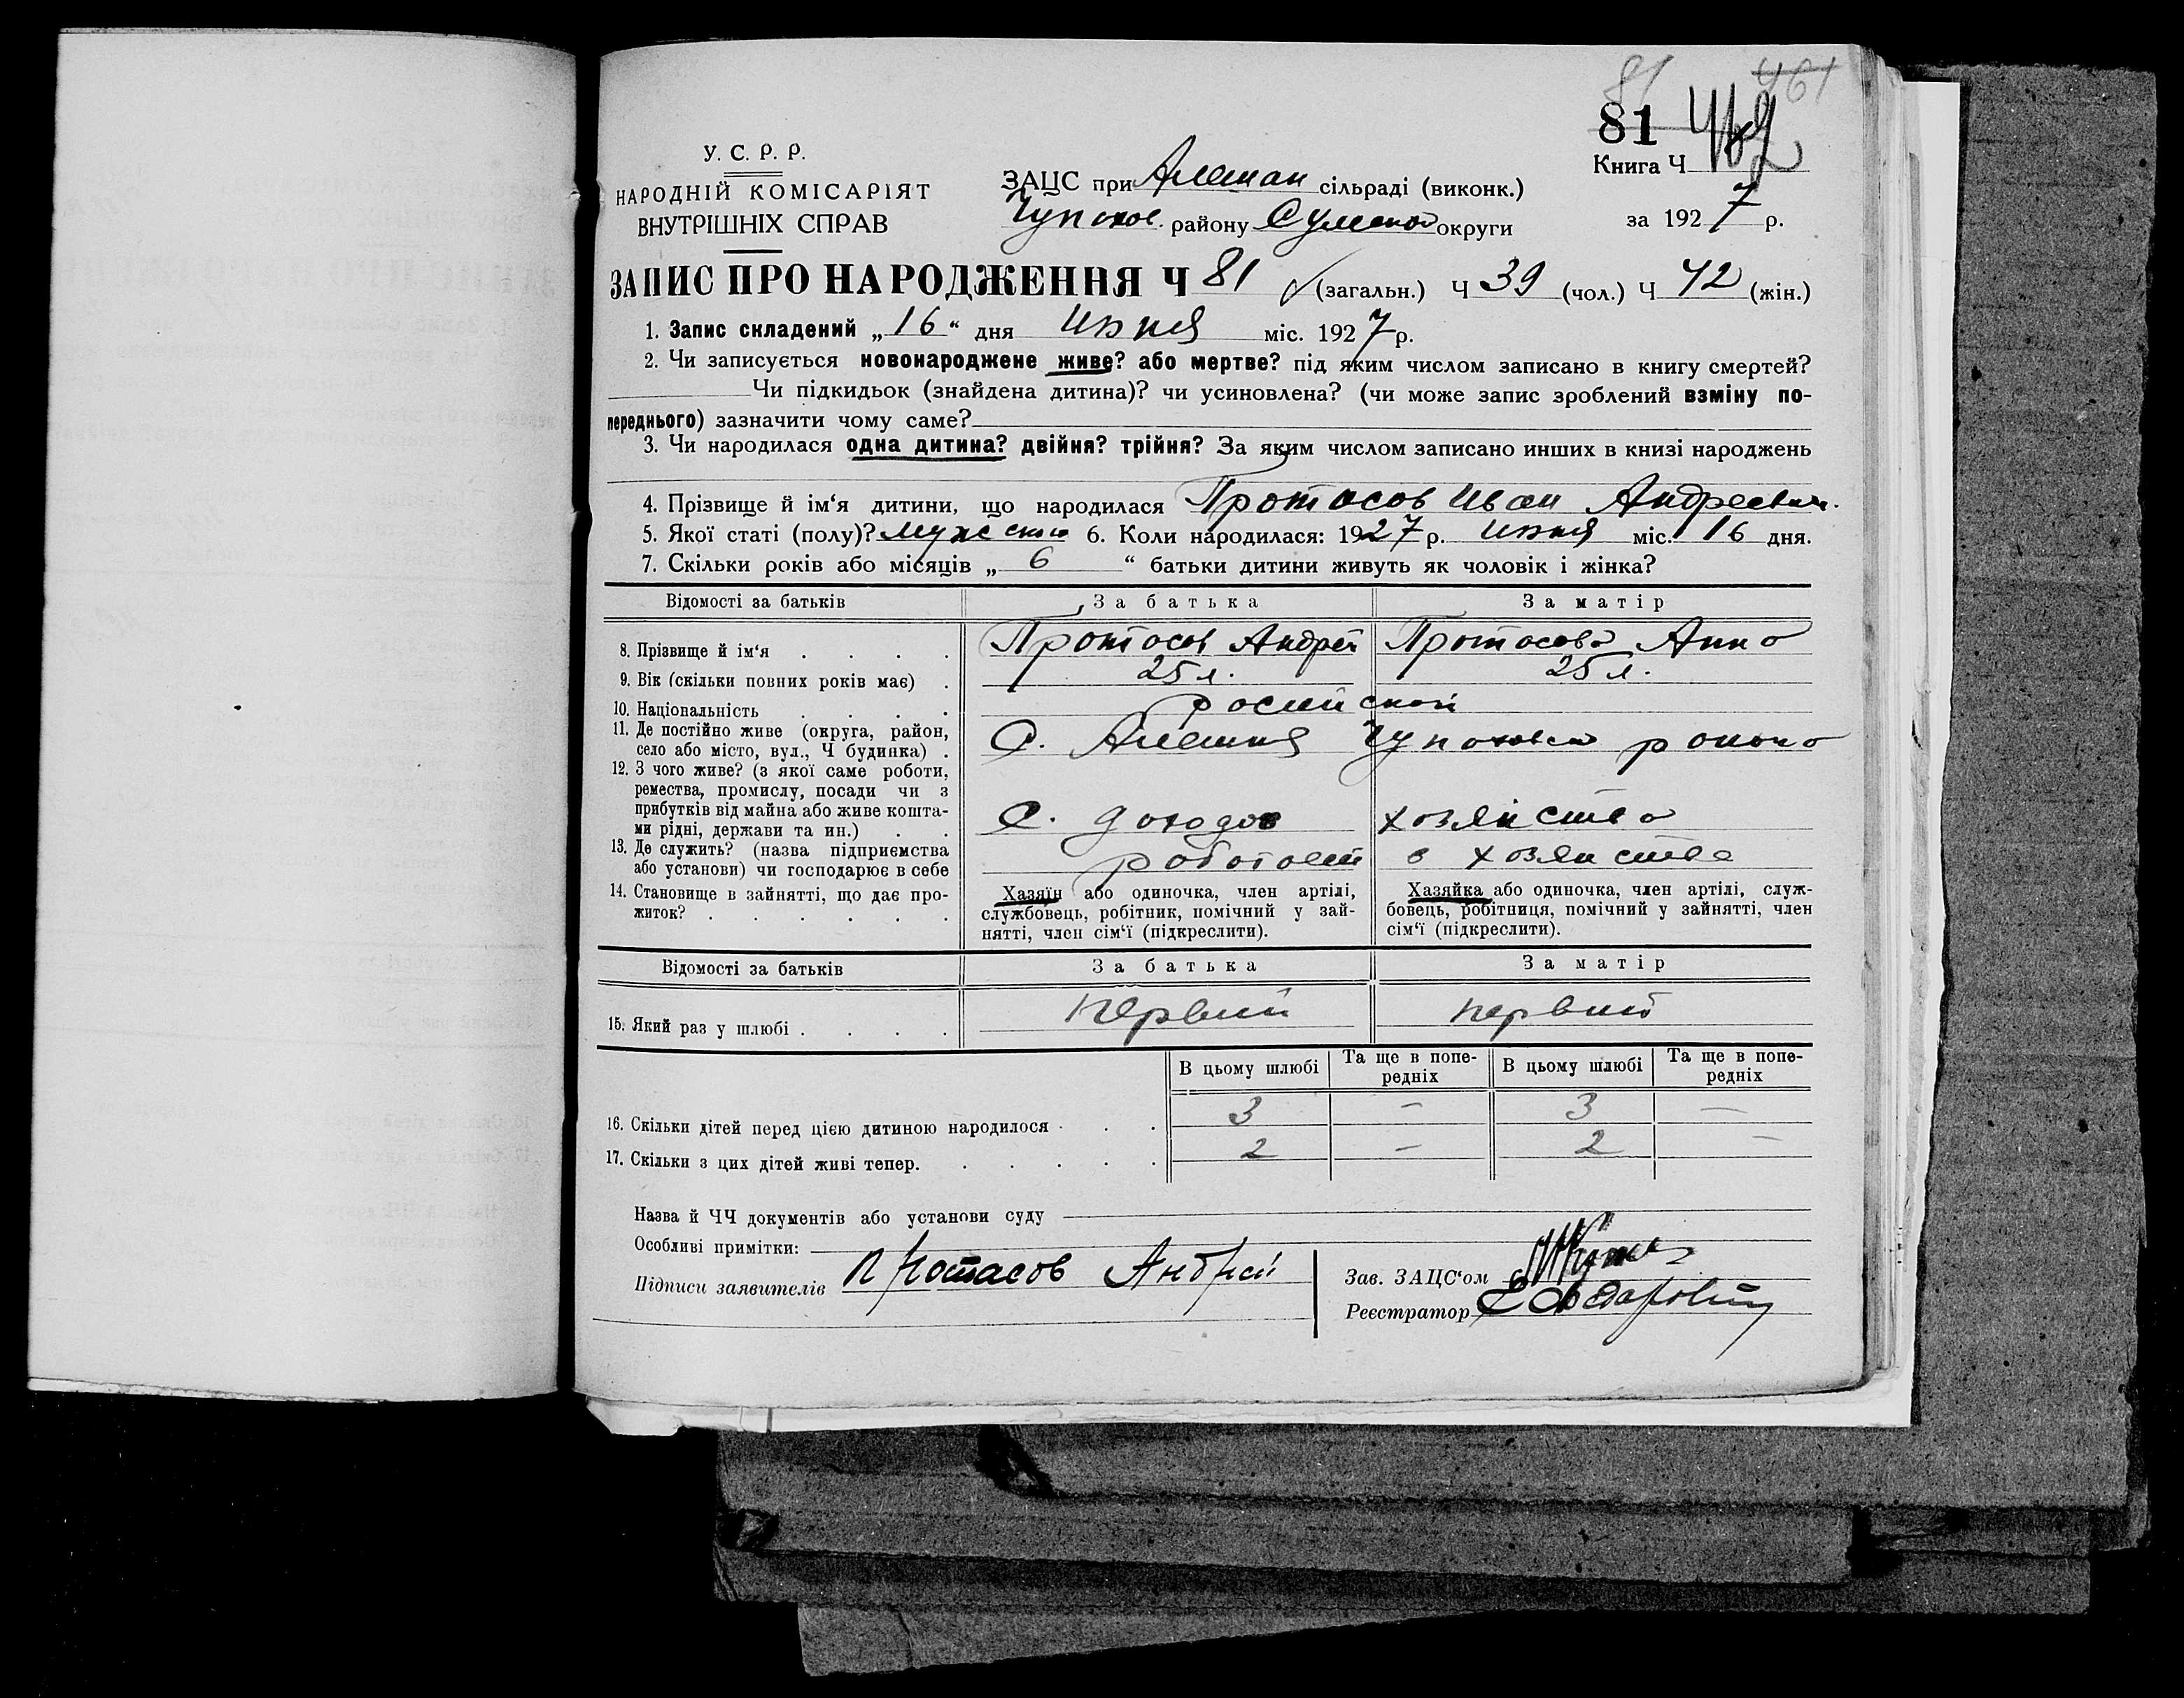 81 461
81 462
Книга Ч
У. С. Р. Р.
НАРОДНІЙ КОМІСАРІЯТ
ВНУТРІШНІХ СПРАВ
ЗАЦС при Алешан сільраді (виконк.)
Чупаховс. району Сумской округи
за 1927 р.
ЗАПИС ПРО НАРОДЖЕННЯ Ч 81 (загальн.) Ч 39 (чол.) Ч 42 (жін.)
1. Запис складений „16“ дня Июня міс. 1927 р.
2. Чи записується новонароджене живе? або мертве? під яким числом записано в книгу смертей?
Чи підкидьок (знайдена дитина)? чи усиновлена? (чи може запис зроблений взміну по-
переднього) зазначити чому саме?
3. Чи народилася одна дитина? двійня? трійня? За яким числом записано инших в книзі народжень
4. Прізвище й ім‘я дитини, що народилася Протасов Иван Андреевич.
5. Якої статі (полу)? мужского 6. Коли народилася: 1927 р. Июня міс. 16 дня.
7. Скільки років або місяців „ 6 “ батьки дитини живуть як чоловік і жінка?
Відомості за батьків За батька За матір
8. Прізвище й ім‘я . . . . Протасов Андрей Протасова Анна
9. Вік (скільки повних років має) . 25 л. 25 л.
10. Національність . . . . росийской
11. Де постійно живе (округа, район,
село або місто, вул., Ч будинка) . С. Алешня Чупаховск района
12. З чого живе? (з якої саме роботи,
ремества, промислу, посади чи з
прибутків від майна або живе кошта-
ми рідні, держави та ин.) . . С. доходов хозяйства
13. Де служить? (назва підприємства
або установи) чи господарює в себе работает в хозяйстве
14. Становище в зайнятті, що дає про-
житок? . . . . . .
Хазяїн або одиночка, член артілі,
службовець, робітник, помічний у зай-
нятті, член сім‘ї (підкреслити).
Хазяйка або одиночка, член артілі, служ-
бовець, робітниця, помічний у зайнятті, член
сім‘ї (підкреслити).
Відомості за батьків За батька За матір
15. Який раз у шлюбі . . . . первий первий
В цьому шлюбі Та ще в попе-редніх В цьому шлюбі Та ще в попе-редніх
16. Скільки дітей перед цією дитиною народилося . . . 3 — 3 —
17. Скільки з цих дітей живі тепер. . . . . . 2 — 2 —
Назва й ЧЧ документів або установи суду
Особливі примітки:
Підписи заявителів Протасов Андрей
Зав. ЗАЦС‘ом
Реєстратор